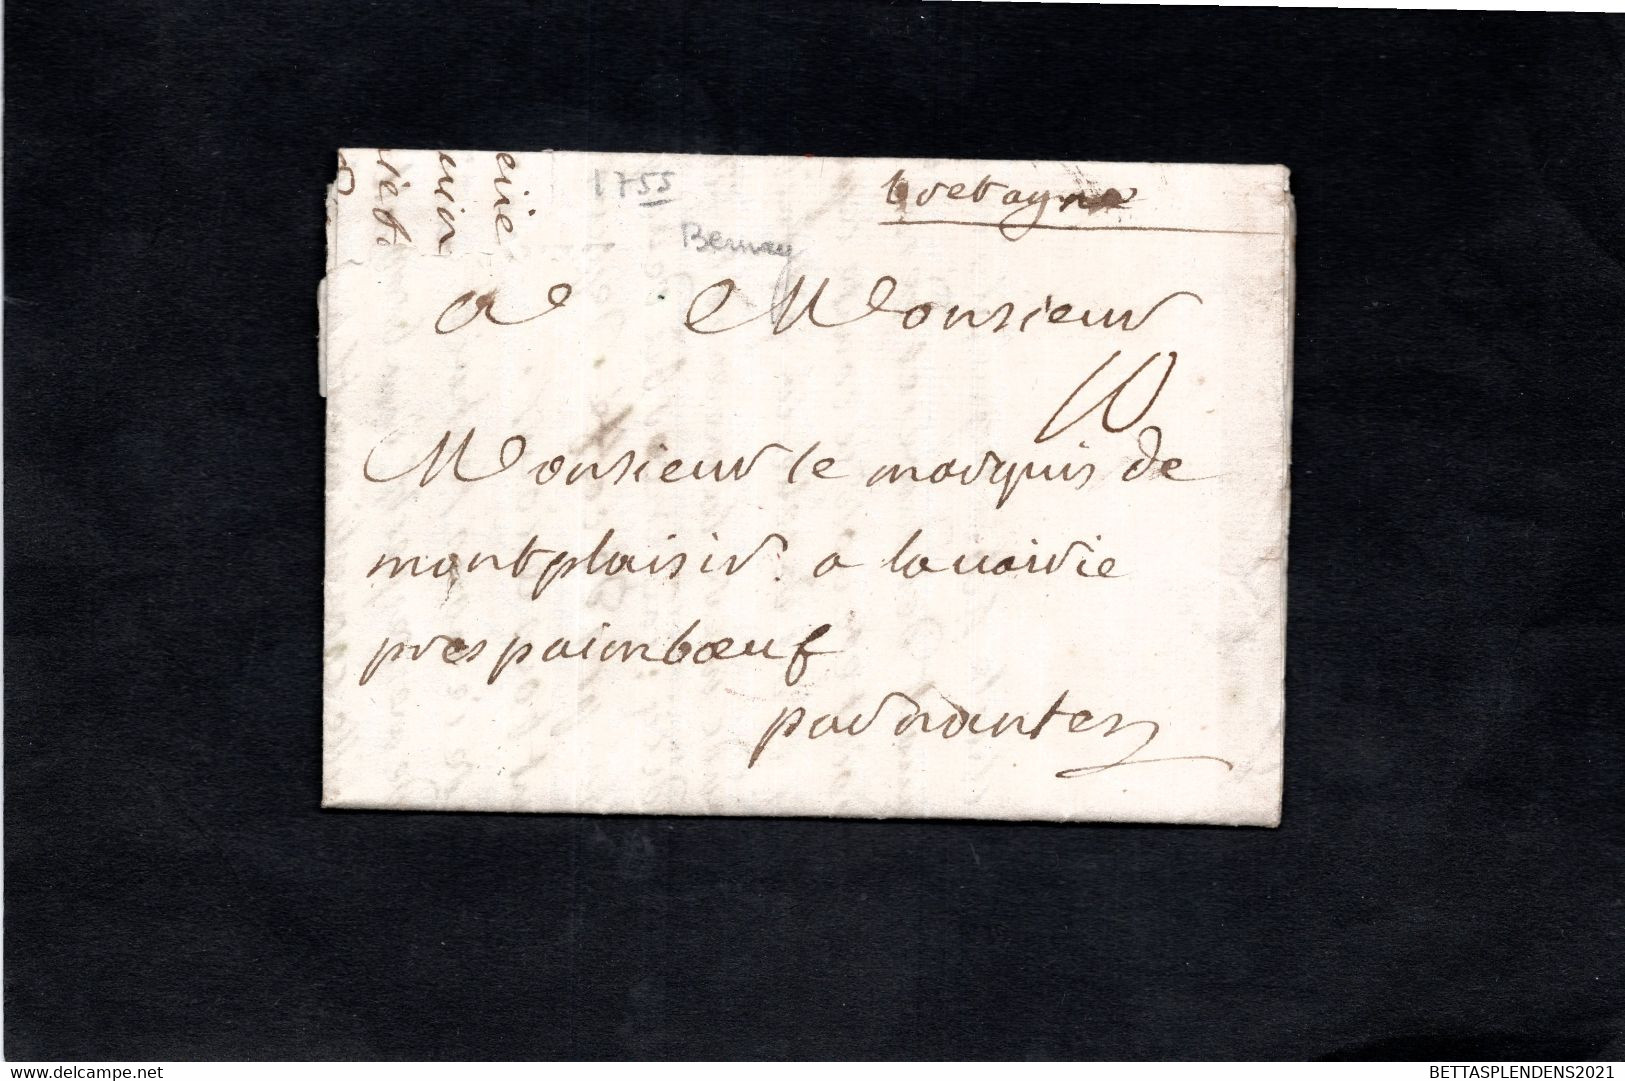 1755
bretagne
Bernay
A Monsieur
10
Monsieur le marquis de
montplaisir. a lavairie
pres paimbœuf
par nantes
eine
nion
www.delcampe.net
BETTASPLENDENS2021